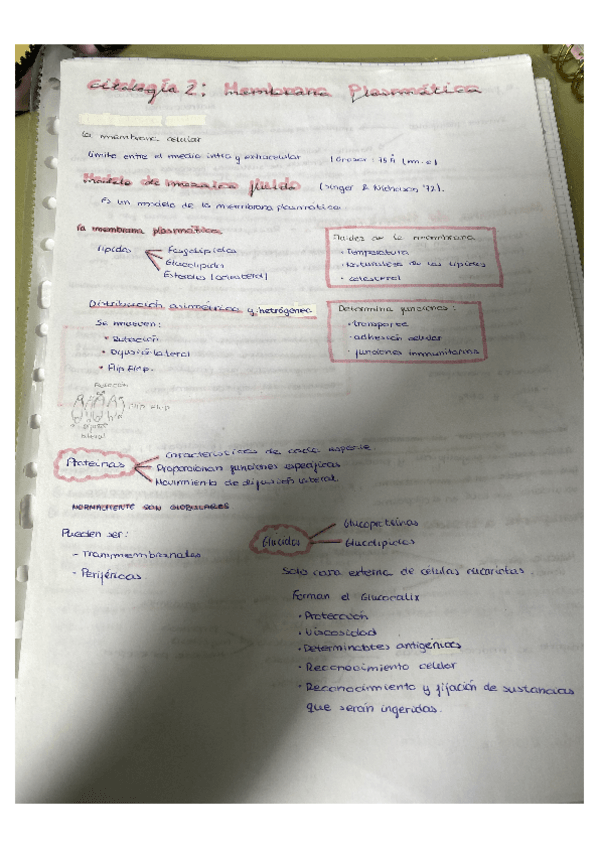 Citología 2: Membrana Plasmática
la membrana celular
límite entre el medio intra y extracelular
Modelo de mosaico fluido (Singer & Nicholson '72).
Es un modelo de la membrana plasmática.
la membrana plasmática
lípidos
Fosfolípidos
Glucolípidos
Esteroles (colesterol)
Fluidez de la membrana
· Temperatura
· Naturaleza de los lípidos
· colesterol
Distribución asimétrica y hetrógenea
Se mueven:
• Rotación
• Difusión lateral
• Flip Flop.
Determina funciones:
· transporte
· adhesión celular
· funciones inmunitarias
Rotación
Flip Flop
lateral
Proteinas
Características de cada especie
Proporcionan funciones específicas
Movimiento de difusión lateral.
NORMALMENTE SON GLOBULARES
Pueden ser:
- Transmembranales
- Periféricas
Glúcidos
Glucoproteínas
Glucolípidos
Solo cara externa de células eucariotas.
Forman el Glucocalix
• Protección
• Viscosidad
• Determinantes antigénicos
• Reconocimiento celular
• Reconocimiento y fijación de sustancias
que serán ingeridas.